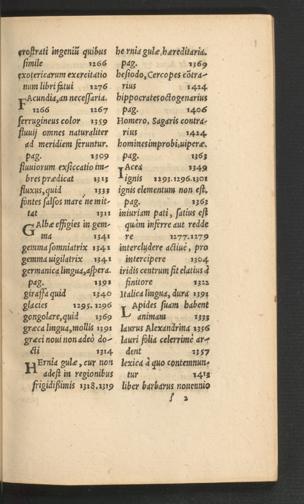 erostrati ingeniũ quibus
simile 1266
exotericarum exercitatio
num libri futui 1276
Facundia, an necessaria.
1266 1267
ferrugineus color 1359
fluuij omnes naturaliter
ad meridiem feruntur.
pag. 1309
fluuiorum exsiccatio im-
bres prædicat 1313
fluxus, quid 1333
fontes salsos mare ne mit-
tat 1311
Galbæ effigies in gem-
ma 1341
gemma somniatrix 1341
gemma uigilatrix 1341
germanica lingua, aspera.
pag. 1391
giraffa quid 1340
glacies 1295. 1296
gongolare, quid 1369
græca lingua, mollis 1391
græci noui non adeò do-
cti 1314
Hernia gulæ, cur non
adest in regionibus
frigidissimis 1318. 1319
he rnia gulæ, hæreditaria.
pag. 1369
hesiodo, Cercopes cõtra-
rius 1424
hippocrates octogenarius
pag. 1406
Homero, Sagaris contra-
rius 1424
homines improbi, uiperæ.
pag. 1363
Iacea 1349
ignis 1293. 1296. 1301
ignis elementum non est,
pag. 1362
iniuriam pati, satius est
quàm inferre aut redde
re 1277. 1279
intercludere actiuè, pro
intercipere 1304
iridis centrum sit elatius à
finitore 1322
Italica lingua, dura 1391
Lapides suam habent
animam 1333
laurus Alexandrina 1356
lauri folia celerrimè ar-
dent 1357
lexica à quo contemnun-
tur 1412
liber barbarus nouennio
f 2